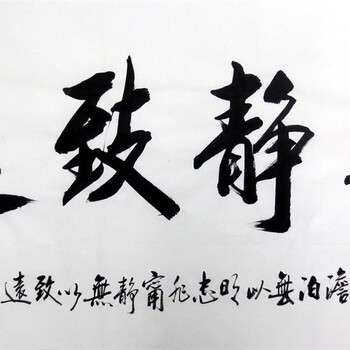 静致
澹泊無以明志非甯静無以致遠